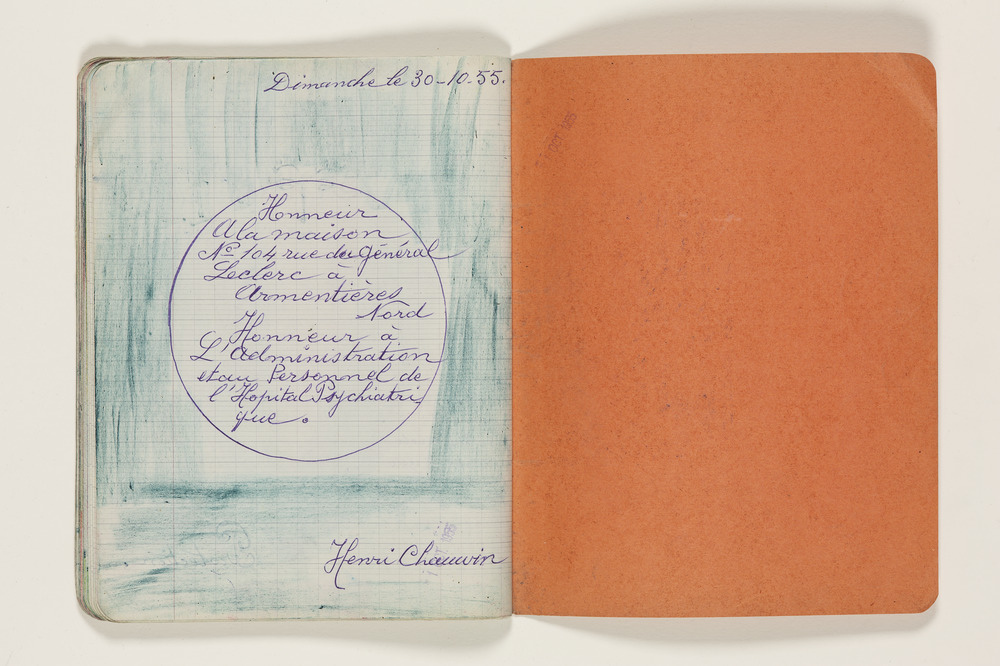 Dimanche le 30-10-55.
Honneur
A la maison
No 104 rue du Général
Leclerc à
Armentières
Nord
Honneur à
L'Administration
et au Personnel de
l'Hopital Psychiatri
que.
Henri Chauvin